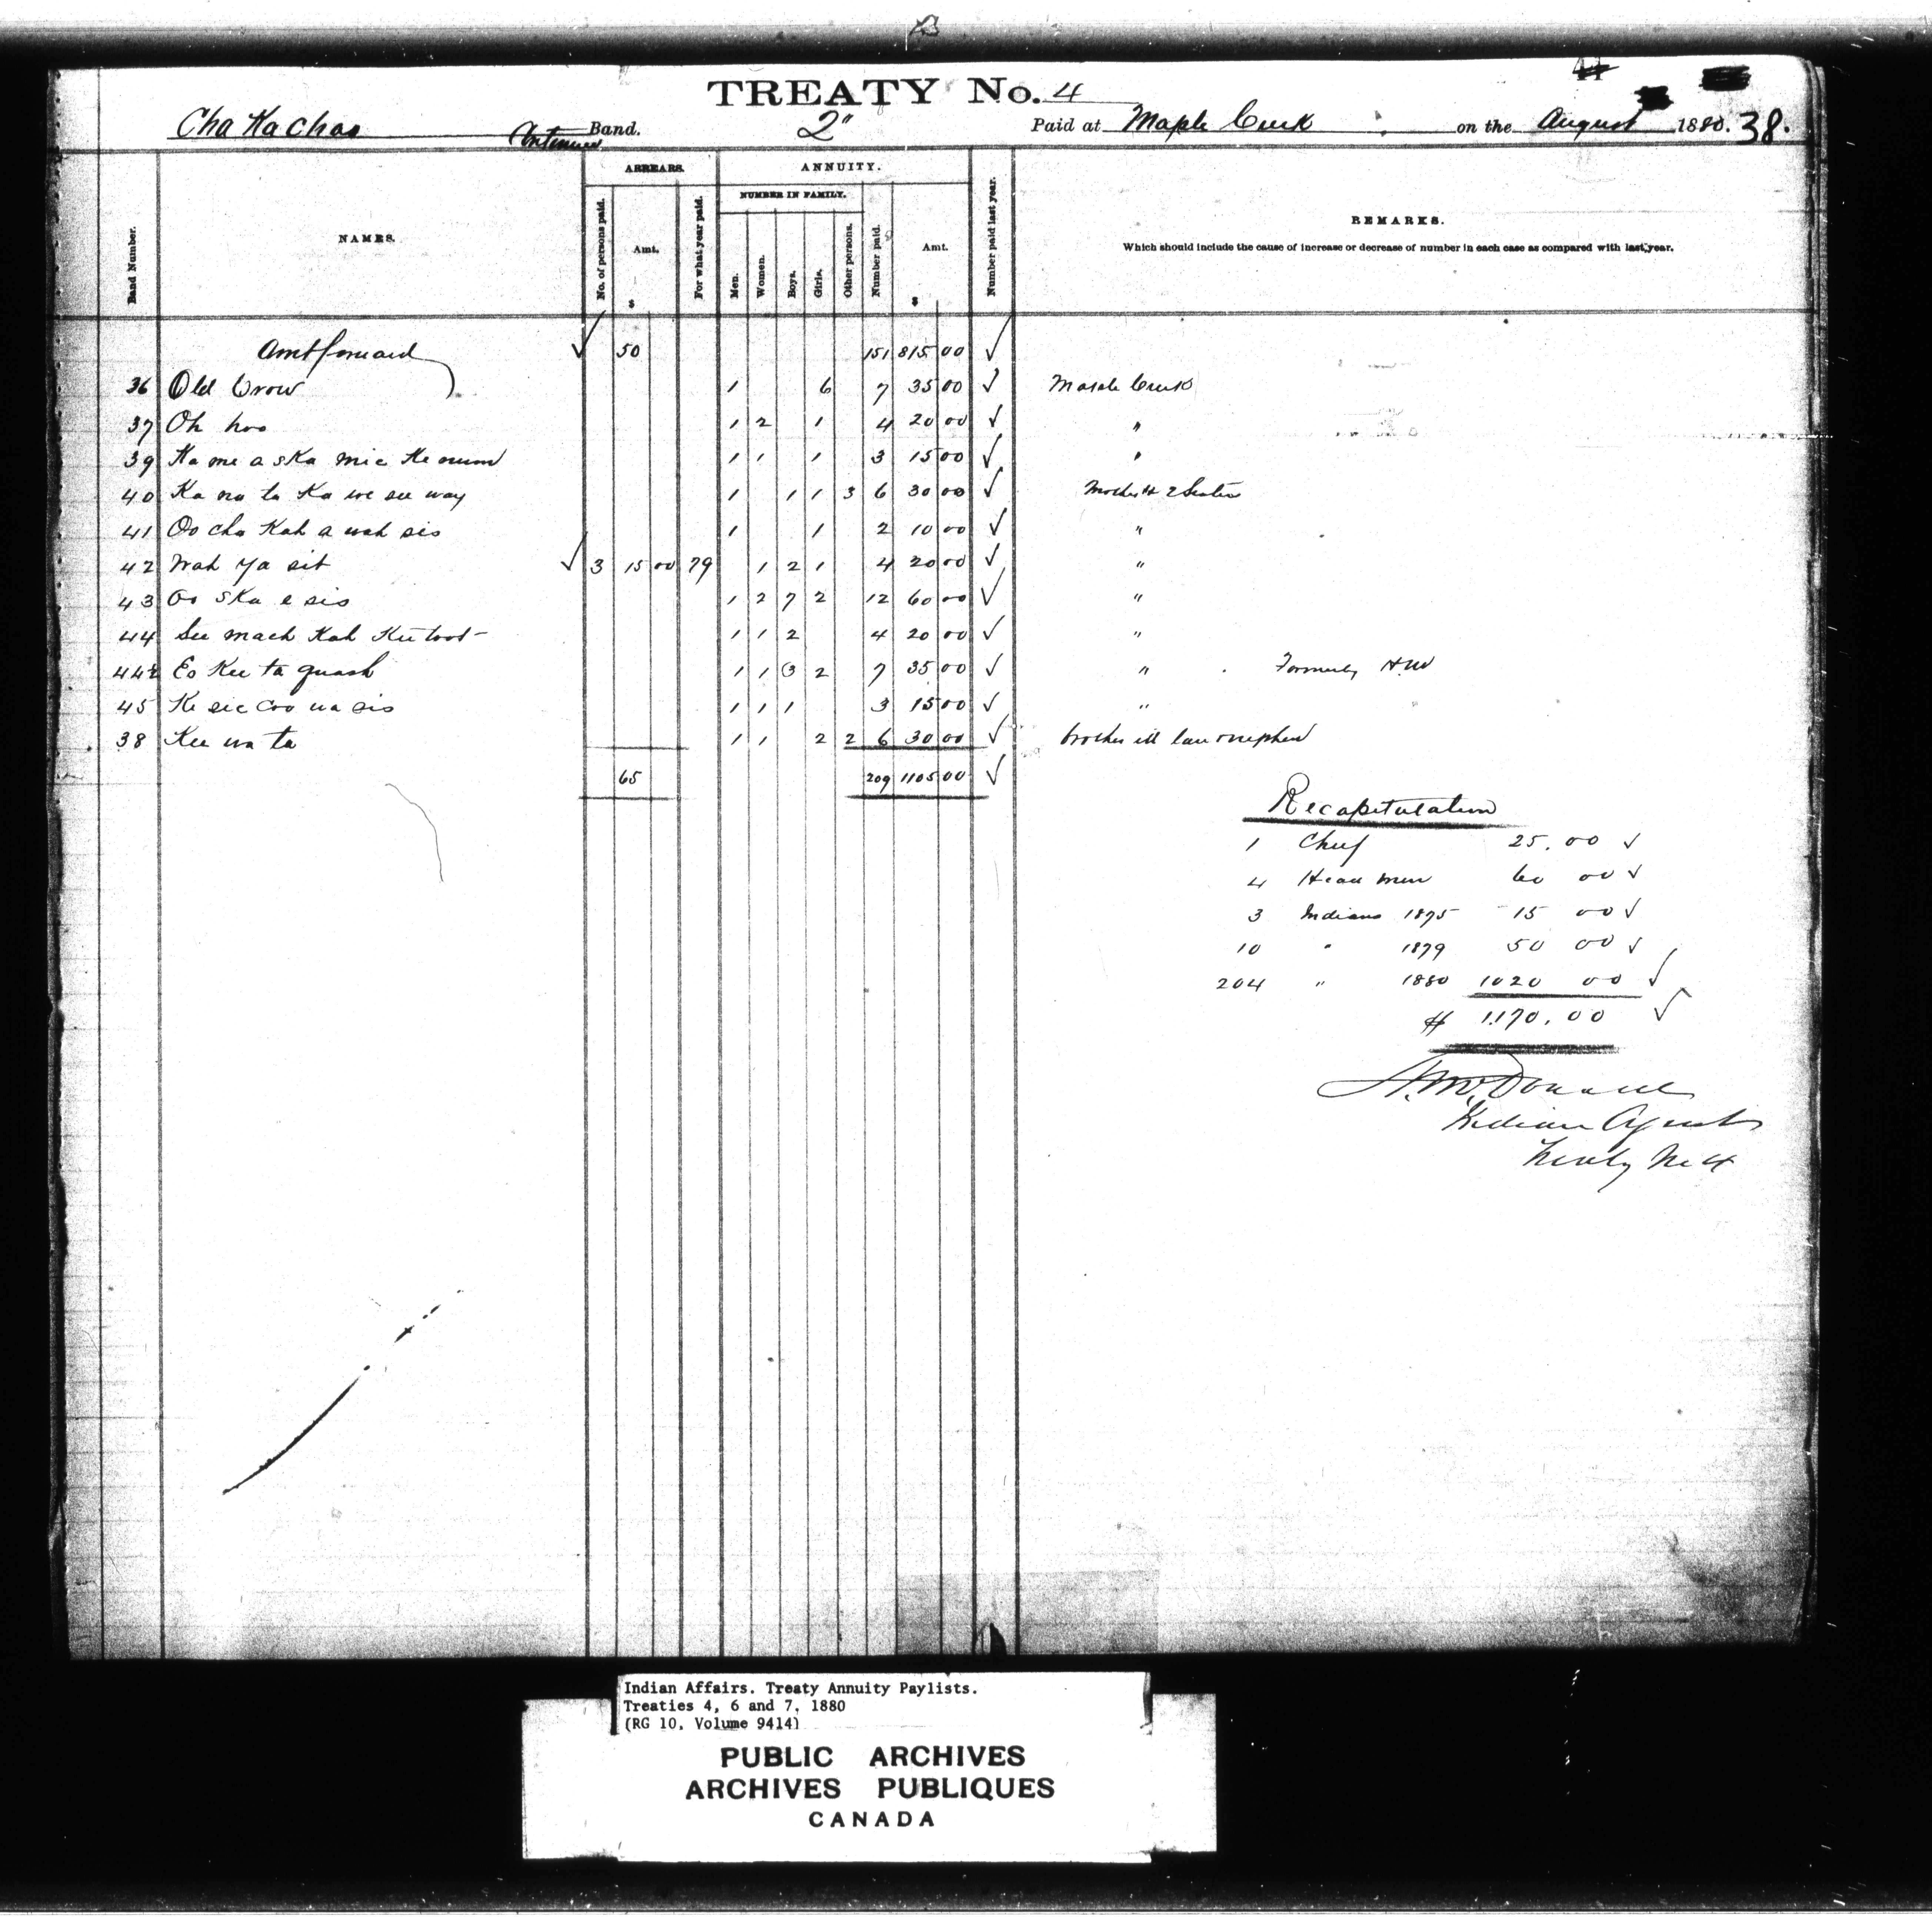 TREATY No. 4
Cha Ka Chas Continued Band. 2" Paid at Maple Creek on the August 1880. 38.
Band Number. NAMES. ARREARS. No. of persons paid. Amt. $ For what year paid. ANNUITY. NUMBER IN FAMILY. Men. Women. Boys. Girls. Other persons. Number paid. Amt. $ Number paid last year. REMARKS.
Which should include the cause of increase or decrease of number in each case as compared with last year.
Amt forward ✓ 50 151 815 00 ✓
36 Old Crow 1 6 7 35 00 ✓ Maple Creek
37 Oh hoo 1 2 1 4 20 00 ✓ "
39 Ka me a ska mic Ke num 1 1 1 3 15 00 ✓ "
40 Ka na ta Ka we see way 1 1 1 3 6 30 00 ✓ Mother & 2 Sisters
41 Oo cha Kah a wah sis 1 1 2 10 00 ✓ "
42 Wah Ya sit ✓ 3 15 00 79 1 2 1 4 20 00 ✓ "
43 Oo Ska e sis 1 2 7 2 12 60 00 ✓ "
44 See mach Kah Kee toot 1 1 2 4 20 00 ✓ "
44½ Es Kee ta quash 1 1 3 2 7 35 00 ✓ " Formerly H.M
45 Ke sic Coo wa sis 1 1 1 3 15 00 ✓ "
38 Kee wa ta 1 1 2 2 6 30 00 ✓ brother in law & nephew
65 209 1105 00 ✓
Recapitulation
1 Chief 25.00 ✓
4 Head men 60 00 ✓
3 Indians 1875 15 00 ✓
10 " 1879 50 00 ✓
204 " 1880 1020 00 ✓
$ 1170.00 ✓
A. McDonald
Indian Agent
Treaty No 4
Indian Affairs. Treaty Annuity Paylists.
Treaties 4, 6 and 7, 1880
(RG 10, Volume 9414)
PUBLIC ARCHIVES
ARCHIVES PUBLIQUES
CANADA